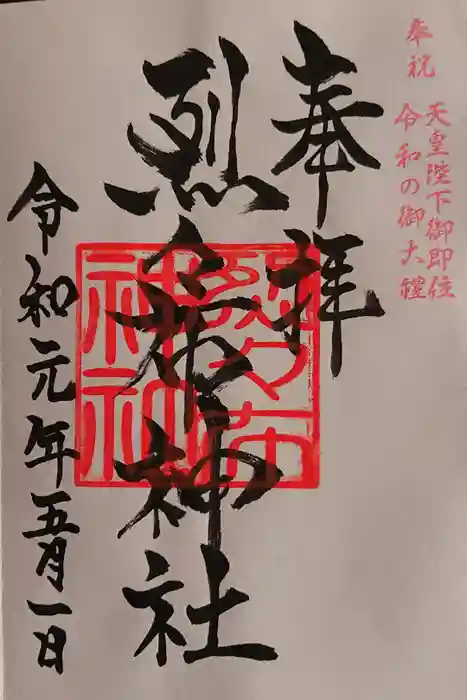 奉祝
天皇陛下御即位
令和の御大禮
奉拝
烈々布神社
烈々布
神社
令和元年五月一日